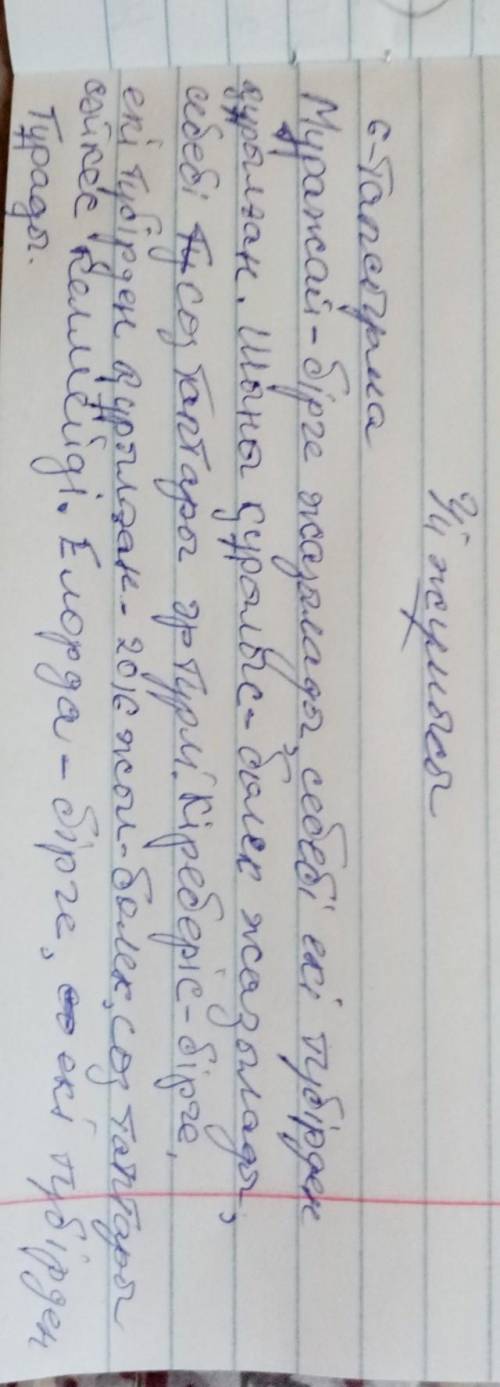 Үй жұмысы
6-тапсырма
Мұражай - бірге жазылады, себебі екі түбірден
құрылған. Шыны құрылыс - бөлек жазылады,
себебі сөз таптары әр түрлі. Кіреберіс - бірге,
екі түбірден құрылған - жол - бөлек, сөз таптары
сәйкес келмейді. Елорда - бірге, екі түбірден
тұрады.